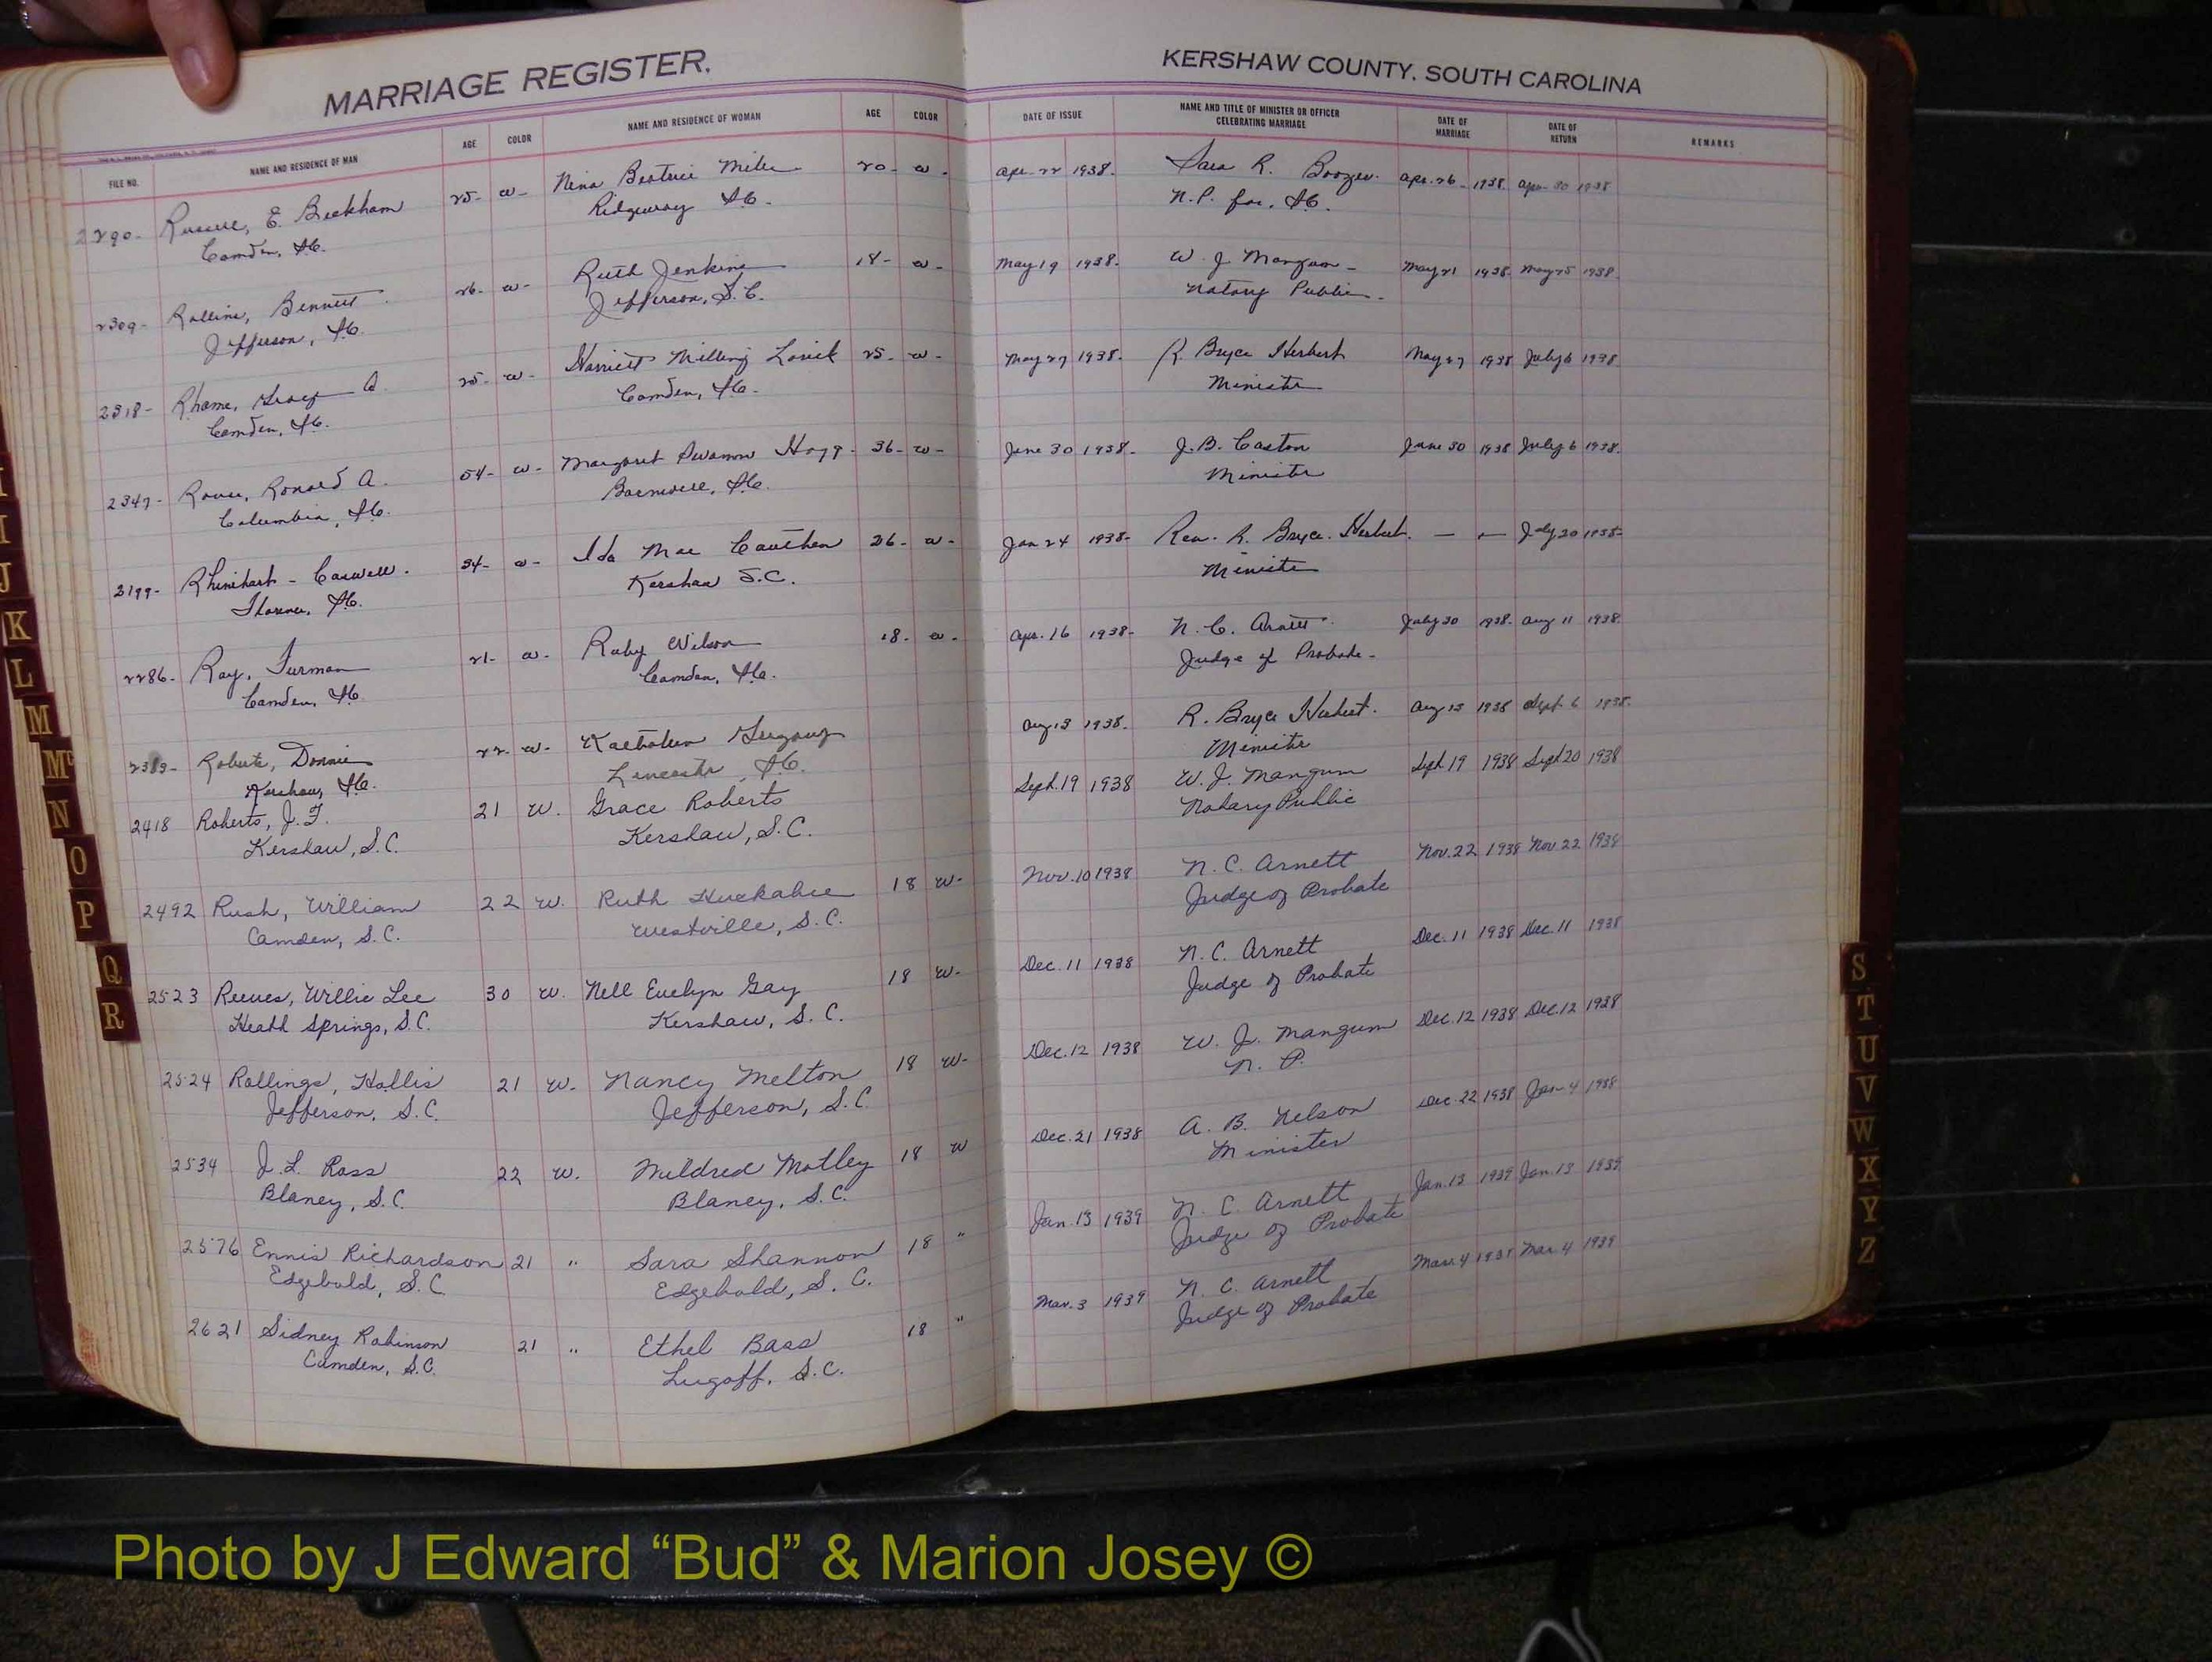 MARRIAGE REGISTER.
FILE NO. NAME AND RESIDENCE OF MAN AGE COLOR NAME AND RESIDENCE OF WOMAN AGE COLOR
2290- E. Beckham 25- w- Nina Beatrice 20- w-
Camden, SC. Ridgeway SC.
2309- Bennett 26- w- Ruth Jenkins 18- w-
Jefferson, SC. Jefferson, S.C.
2318- Rhame, A. 25- w- Harriett Milling 25- w-
Camden, SC. Camden, SC.
2347- Ronald A. 54- w- Margaret Hogg- 36- w-
Columbia, SC. Barnwell, SC.
Rhinehart - Caswell. 34- w- Ida Mae Cauthen 26- w-
Florence, SC. Kershaw S.C.
2286- Ray, Furman 21- w- Ruby Wilson 18- w-
Camden, SC. Camden, SC.
Roberts, Donnie 22- w-
Kershaw, SC. Lancaster, SC.
2418 Roberts, J. F. 21 W. Grace Roberts
Kershaw, S.C. Kershaw, S.C.
2492 Rush, William 22 W. Ruth Huckabee 18 W-
Camden, S.C. Westville, S.C.
2523 Reeves, Willie Lee 30 W. Nell Evelyn Gay 18 W-
Heath Springs, S.C. Kershaw, S.C.
2524 Rollings, Hollis 21 W. Nancy Melton 18 W-
Jefferson, S.C. Jefferson, S.C.
2534 J. L. Ross 22 W. Mildred Motley 18 W
Blaney, S.C. Blaney, S.C.
2576 Ennis Richardson 21 " Sara Shannon 18 "
Edgebold, S.C. Edgebold, S.C.
2621 Sidney Robinson 21 " Ethel Bass 18 "
Camden, S.C. Lugoff, S.C.
KERSHAW COUNTY, SOUTH CAROLINA
DATE OF ISSUE NAME AND TITLE OF MINISTER OR OFFICER CELEBRATING MARRIAGE DATE OF MARRIAGE DATE OF RETURN REMARKS
Apr. 22 1938. Sara R. Boozer. Apr. 26- 1938. Apr- 30 1938
N.P. for, SC.
May 19 1938. W. J. Mangum- May 21 1938 May 25 1938.
Notary Public-
May 27 1938- R. Bryce Herbert May 27 1938 July 6 1938
Minister
June 30 1938- J. B. Caston June 30 1938 July 6 1938.
Minister
Jan 24 1938- Rev. R. Bryce Herbert. — — July 20 1938-
Minister
Apr. 16 1938- N. C. Arnett. July 30 1938. Aug 11 1938
Judge of Probate-
Aug 13 1938. R. Bryce Herbert. Aug 13 1938 Sept. 6 1938.
Minister
Sept. 19 1938 W. J. Mangum Sept. 19 1938 Sept 20 1938
Notary Public
Nov. 10 1938 N. C. Arnett Nov. 22 1938 Nov 22 1938
Judge of Probate
Dec. 11 1938 N. C. Arnett Dec. 11 1938 Dec. 11 1938
Judge of Probate
Dec. 12 1938 W. J. Mangum Dec. 12 1938 Dec. 12 1938
N. P.
Dec. 21 1938 A. B. Nelson Dec. 22 1938 Jan- 4 1938
Minister
Jan. 13 1939 N. C. Arnett Jan. 13 1939 Jan. 13 1939
Judge of Probate
Mar. 3 1939 N. C. Arnett Mar. 4 1939 Mar. 4 1939
Judge of Probate
J
K
L
M
Mc
N
O
P
Q
R
S
T
U
V
W
X
Y
Z
Photo by J Edward “Bud” & Marion Josey ©